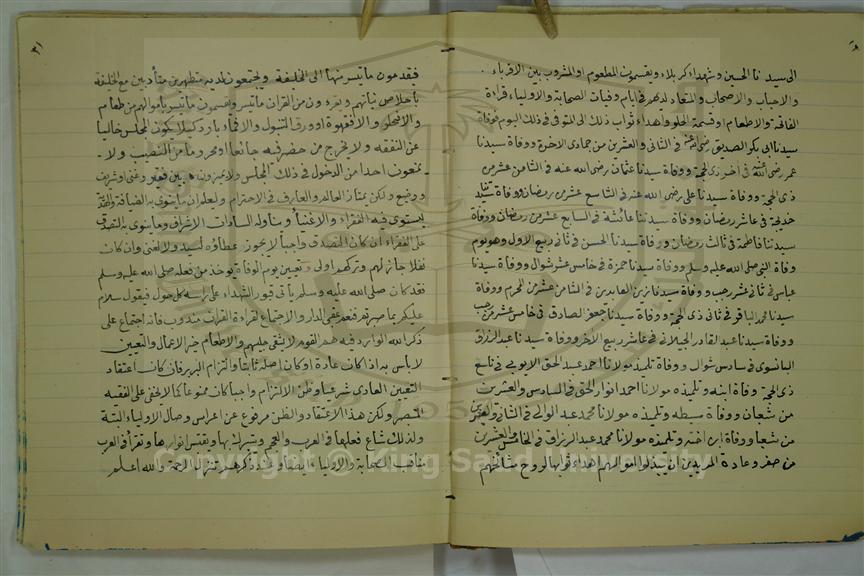 الى سيدنا الحسين وشهداء كربلاء ويقسمون المطعوم او المشروب بين الاقرباء
والاحباب والاصحاب والمتعاد لدهم في ايام وفيات الصحابة والاولياء قراءة
الفاتحة والاطعام او قسمة الحلو واهداء ثواب ذلك الى المتوفى في ذلك اليوم فوفاة
سيدنا ابي بكر الصديق رضي الله عنه في الثاني والعشرين من جمادى الاخرة ووفاة سيدنا
عمر رضي الله عنه في اخر ذي الحجة ووفاة سيدنا عثمان رضي الله عنه في الثامن عشر من
ذي الحجة ووفاة سيدنا علي رضي الله عنه في التاسع عشر من رمضان ووفاة سيدتنا
خديجة في عاشر رمضان ووفاة سيدتنا عائشة في السابع عشر من رمضان ووفاة
سيدتنا فاطمة في ثالث رمضان ووفاة سيدنا الحسن في ثاني ربيع الاول وهو يوم
وفاة النبي صلى الله عليه وسلم ووفاة سيدنا حمزة في خامس عشر شوال ووفاة سيدنا
عباس في ثاني عشر رجب ووفاة سيدنا زين العابدين في الثامن عشر من المحرم ووفاة
سيدنا محمد الباقر في ثاني ذي الحجة ووفاة سيدنا جعفر الصادق في خامس عشر من رجب
ووفاة سيدنا عبد القادر الجيلاني في عاشر ربيع الاخر ووفاة سيدنا عبد الرزاق
البانسوي في سادس شوال ووفاة تلميذه مولانا احمد عبد الحق الايوبي في تاسع
ذي الحجة وفاة ابنه وتلميذه مولانا احمد انوار الحق في السادس والعشرين
من شعبان ووفاة سبطه وتلميذه مولانا محمد عبد الوالي في الثاني والعشرين
من شعبا ووفاة ابن اختر وتلميذه مولانا محمد عبد الرزاق في الخامس والعشرين
من صفر وعادة المريدين ان يبذلوا اموالهم اهداء ثوابها لروح مشائخهم
٣١
فيقدمون ما تيسر منها الى الخلفة ويجتمعون لديه متطهرين متأدبين مع الخليفة
باخلاص نياتهم ويقرءون من القران ما تيسر ويقسمون ما تيسر باموالهم من طعام
والافحلو والافقهوة او ورق التنبول والافماء بارد كيلا يكون المجلس خاليا
عن النفقة ولا يخرج من حضر فيه جائعا او محروما من النصيب ولا
يمنعون احدا من الدخول في ذلك المجلس ولا يميزون فيه بين فقير وغني وشريف
ووضيع ولكن يمتاز العالم والعارف في الاحترام وليعلم ان ما ينوى به الضيافة والهدية
يستوى فيه الفقراء والاغنياء ويناوله السادات الاشراف وما ينوى به التصدق
على الفقراء ان كان المتصدق واجبا لا يجوز عطاؤه لسيد ولا لغني وان كان
نفلا جاز لهم وتركه اولى وتعيين يوم الوفاة يوخذ من فعله صلى الله عليه وسلم
فقد كان صلى الله عليه وسلم يأتي قبور الشهداء على رأس كل حول فيقول سلام
عليكم بما صبرتم فنعم عقبى الدار والاجتماع لقراءة القران مندوب فانه اجتماع على
ذكر الله الوارد فيه هم القوم لا يشقى جليسهم والاطعام خير الاعمال والتعيين
لا بأس به اذا كان عادة او كان اصله ثابتا والتزام البر فان كان اعتقاد
التعيين العادي شرعيا وظن الالتزام واجبا كان ممنوعا كما لا يخفى على الفقيه
المتبصر ولكن هذا الاعتقاد والظن مرفوع عن اعراس وصال الاولياء البتة
ولذلك شاع فعلها في العرب والعجم ويتبرك بها ويقتبس انوارها وتقرأ في العرب
مناقب الصحابة والاولياء ايضا وعند ذكرهم تتنزل الرحمة والله اعلم
Copyright © King Saud University